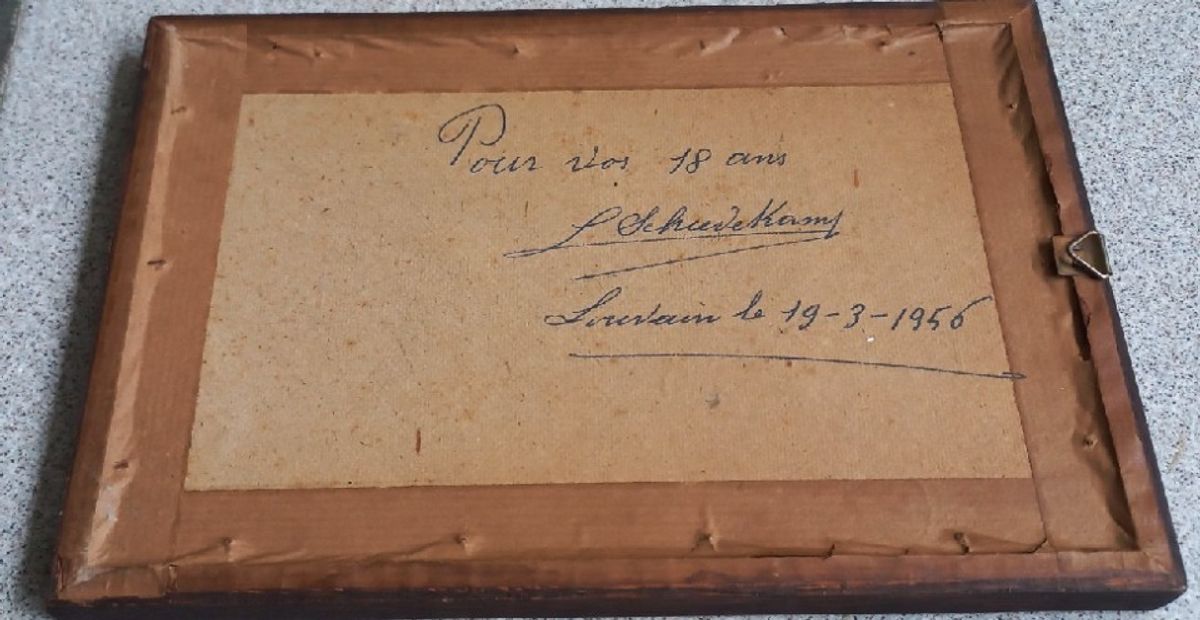 Pour vos 18 ans
L Schuedekamp
Louvain le 19-3-1956